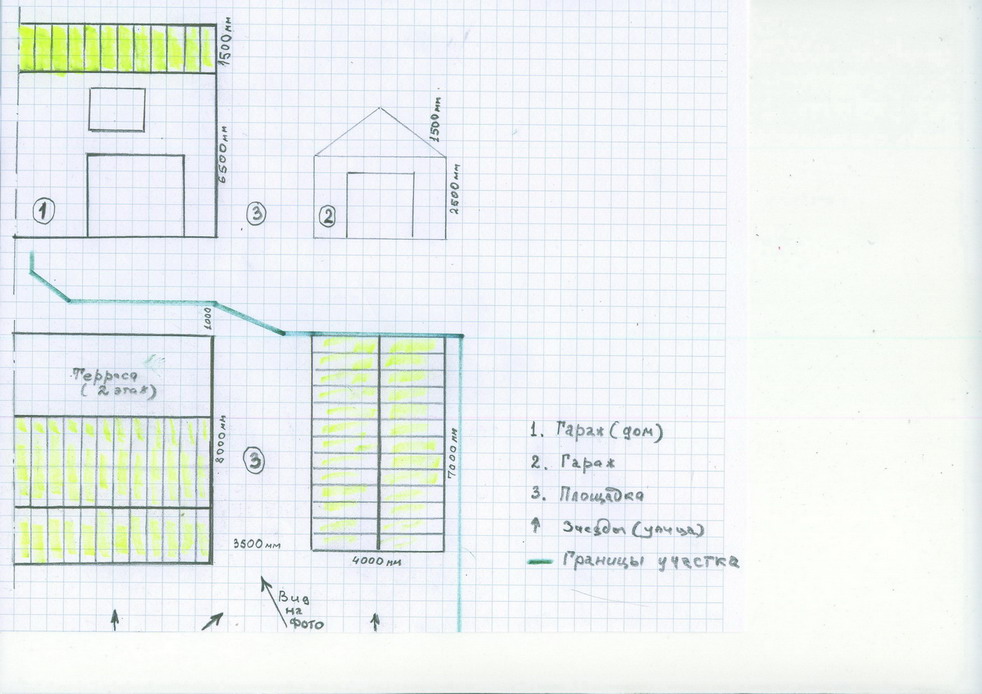 1500мм
6500мм
1
3
2
1500мм
2500мм
1000
Терраса
(2 этаж)
8000мм
3
3500мм
7000мм
4000мм
Вид
на
фото
1. Гараж (дом)
2. Гараж
3. Площадка
Заезды (улица)
Границы участка